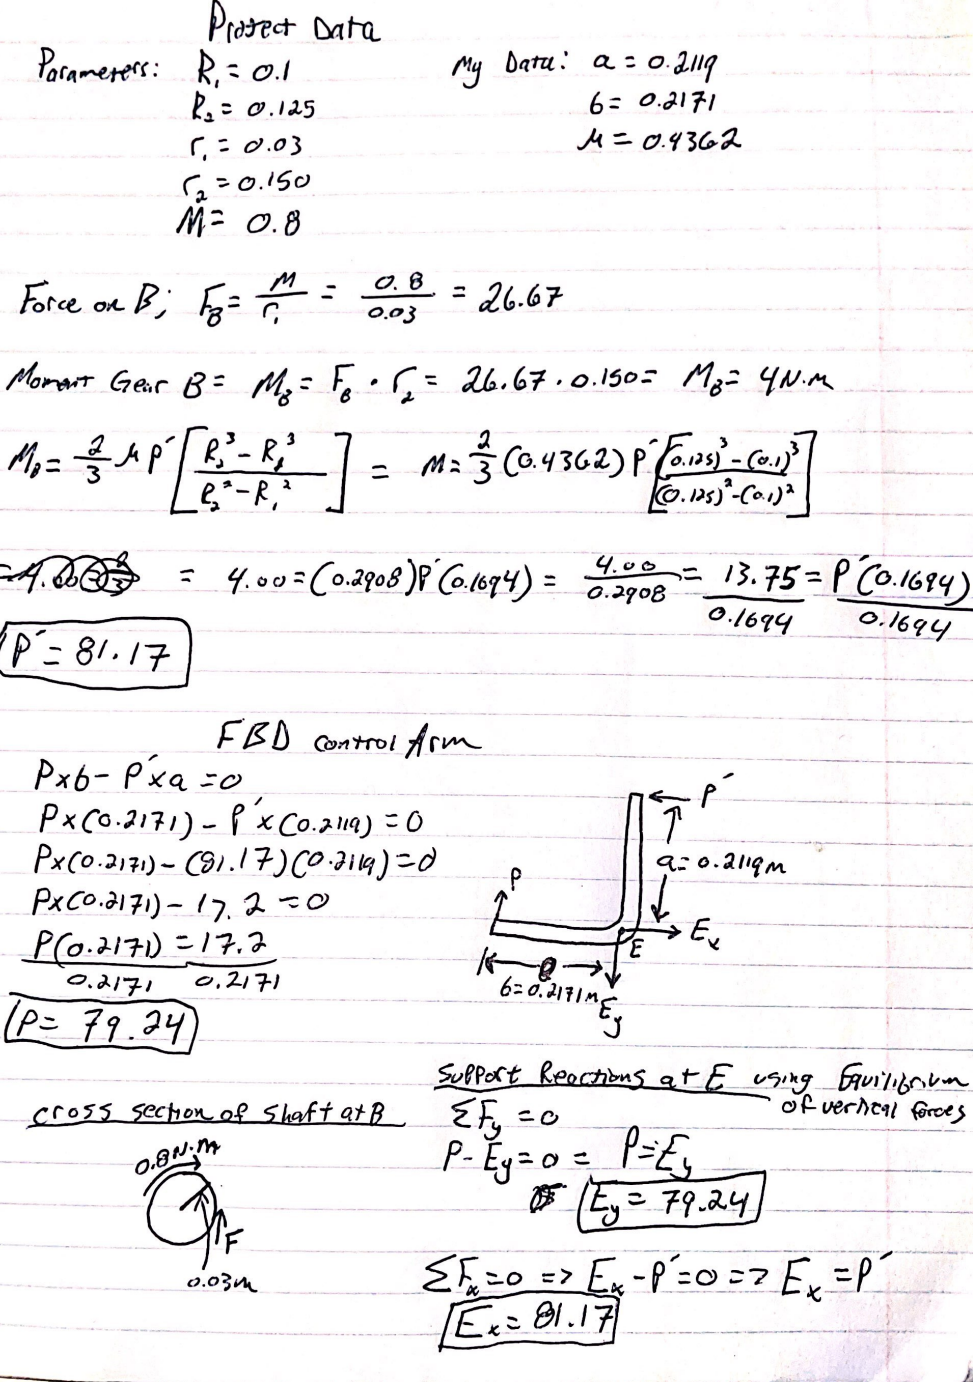 Project Data
Parameters: R₁ = 0.1
R₂ = 0.125
r₁ = 0.03
r₂ = 0.150
M = 0.8
My Data: a = 0.2119
b = 0.2171
μ = 0.4362
Force on B; F_B = M/r₁ = 0.8/0.03 = 26.67
Moment Gear B = M_B = F_B · r₂ = 26.67 · 0.150 = M_B = 4 N·m
M_B = 2/3 μ P′ [R₂³ - R₁³ / R₂² - R₁²] = M = 2/3 (0.4362) P′ [(0.125)³ - (0.1)³ / (0.125)² - (0.1)²]
= 4.00 = (0.2908) P′ (0.1694) = 4.00/0.2908 = 13.75/0.1694 = P′(0.1694)/0.1694
P′ = 81.17
FBD control Arm
P×b - P′×a = 0
P×(0.2171) - P′×(0.2119) = 0
P×(0.2171) - (81.17)(0.2119) = 0
P×(0.2171) - 17.2 = 0
P(0.2171) = 17.2
0.2171 0.2171
P = 79.24
P′
a = 0.2119m
P
E_x
E
b = 0.2171m
E_y
Support Reactions at E using Equilibrium
of vertical forces
ΣF_y = 0
P - E_y = 0 = P = E_y
E_y = 79.24
ΣF_x = 0 => E_x - P′ = 0 => E_x = P′
E_x = 81.17
cross section of shaft at B
0.8 N·m
F
0.03m